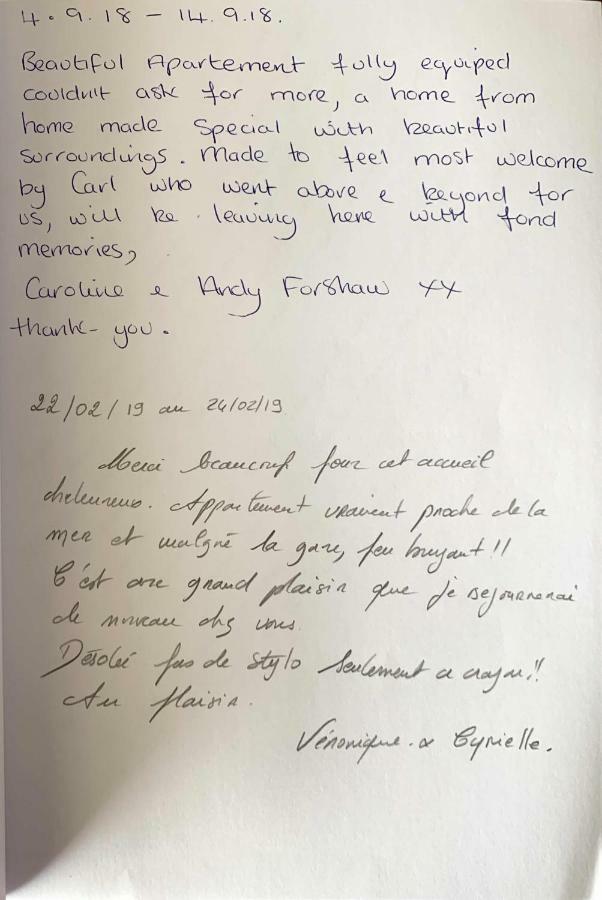 4.9.18 - 14.9.18.
Beautiful Apartement fully equiped
couldnt ask for more, a home from
home made special with beautiful
surroundings. Made to feel most welcome
by Carl who went above & beyond for
us, will be leaving here with fond
memories,
Caroline & Andy Forshaw xx
thank-you.
22/02/19 au 24/02/19
Merci beaucoup pour cet accueil
chaleureux. Appartement vraiment proche de la
mer et malgré la gare, peu bruyant!!
C'est avec grand plaisir que je sejournerai
de nouveau chez vous.
Désolée pas de stylo seulement ce crayon!!
Au plaisir.
Véronique & Cyrielle.